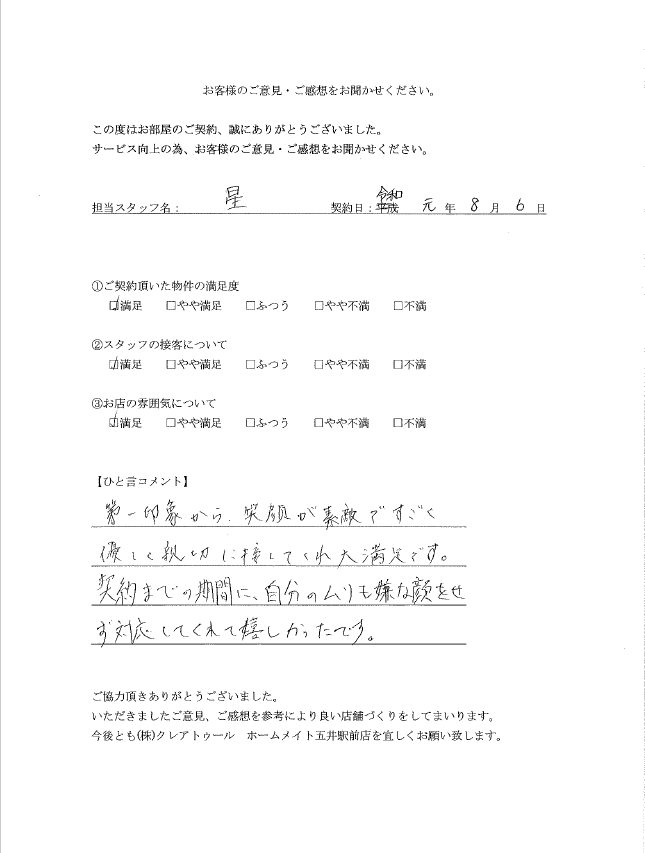 お客様のご意見・ご感想をお聞かせください。
この度はお部屋のご契約、誠にありがとうございました。
サービス向上の為、お客様のご意見・ご感想をお聞かせください。
担当スタッフ名: 星 契約日:平成 令和 元 年 8 月 6 日
①ご契約頂いた物件の満足度
☑満足 □やや満足 □ふつう □やや不満 □不満
②スタッフの接客について
☑満足 □やや満足 □ふつう □やや不満 □不満
③お店の雰囲気について
☑満足 □やや満足 □ふつう □やや不満 □不満
【ひと言コメント】
第一印象から、笑顔が素敵ですごく
優しく親切に接してくれ大満足です。
契約までの期間に、自分のムリも嫌な顔をせ
ず対応してくれて嬉しかったです。
ご協力頂きありがとうございました。
いただきましたご意見、ご感想を参考により良い店舗づくりをしてまいります。
今後とも(株)クレアトゥール ホームメイト五井駅前店を宜しくお願い致します。